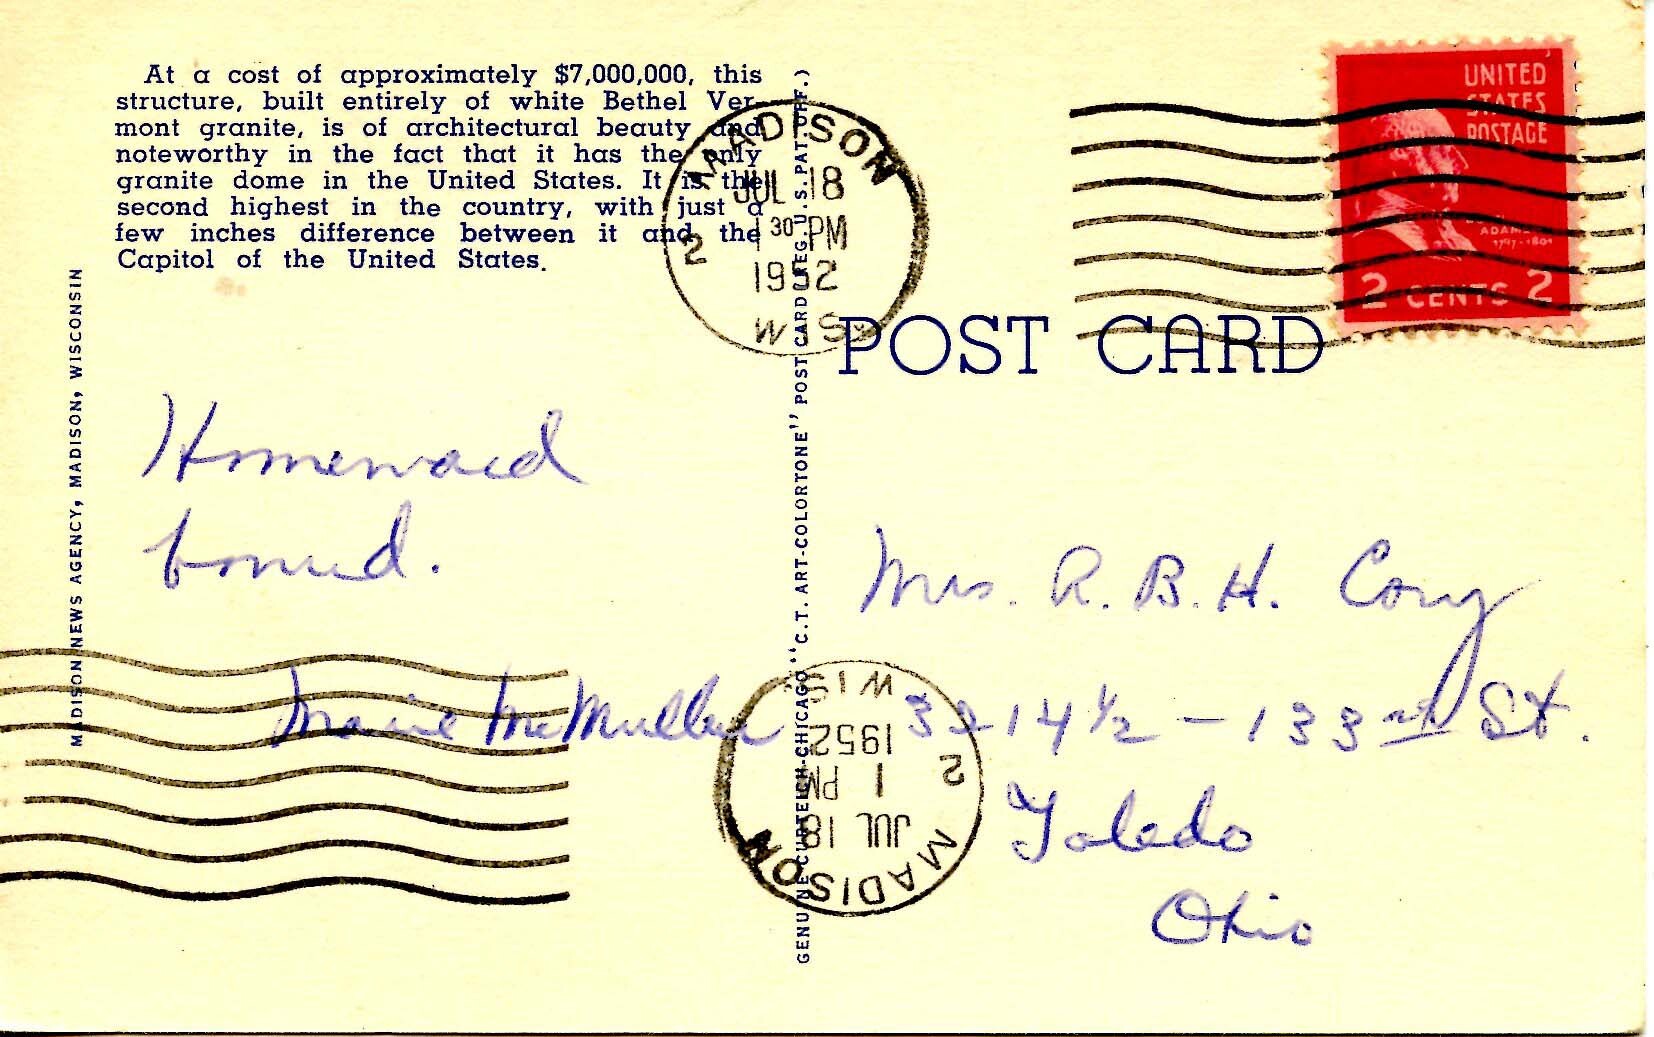 At a cost of approximately $7,000,000, this
structure, built entirely of white Bethel Ver-
mont granite, is of architectural beauty and
noteworthy in the fact that it has the only
granite dome in the United States. It is the
second highest in the country, with just a
few inches difference between it and the
Capitol of the United States.
MADISON NEWS AGENCY, MADISON, WISCONSIN
GENUINE CURTEICH-CHICAGO "C.T. ART-COLORTONE" POST CARD (REG. U.S. PAT. OFF.)
MADISON
2
JUL 18
1 30 PM
1952
WIS.
UNITED
STATES
POSTAGE
ADAMS
1797-1801
2 CENTS 2
POST CARD
Homeward
bound.
Marie McMullen
Mrs. R. B. H. Cory
3214 ½ - 133rd St.
Toledo
Ohio
MADISON
2
JUL 18
1 PM
1952
WIS